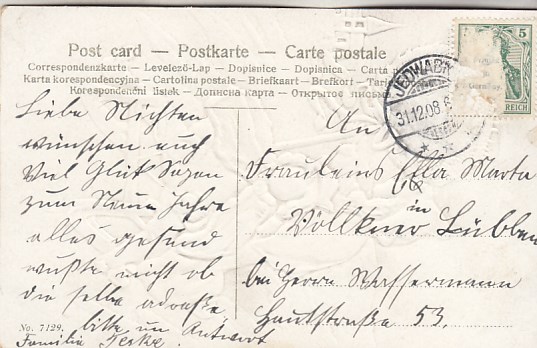 Post card – Postkarte – Carte postale
Correspondenzkarte – Levelező-Lap – Dopisnice – Dopisnica – Carta
Karta korespondencyjna – Cartolina postale – Briefkaart – Brefkort –
Korespondenční lístek – Дописна карта – Открытое письмо
5
REICH
31.12.08
Liebe Nichten
wünschen euch
Viel Glük Segen
zum Neuen Jahre
alles gesund
wußte nicht ob
die selbe adreße
bitte um Antwort
Familie Teske
An
Fräuleins Ella Marta
in
Völlkner Lübben
bei Herrn Wassermann
Hautstraße 53.
No. 7129.